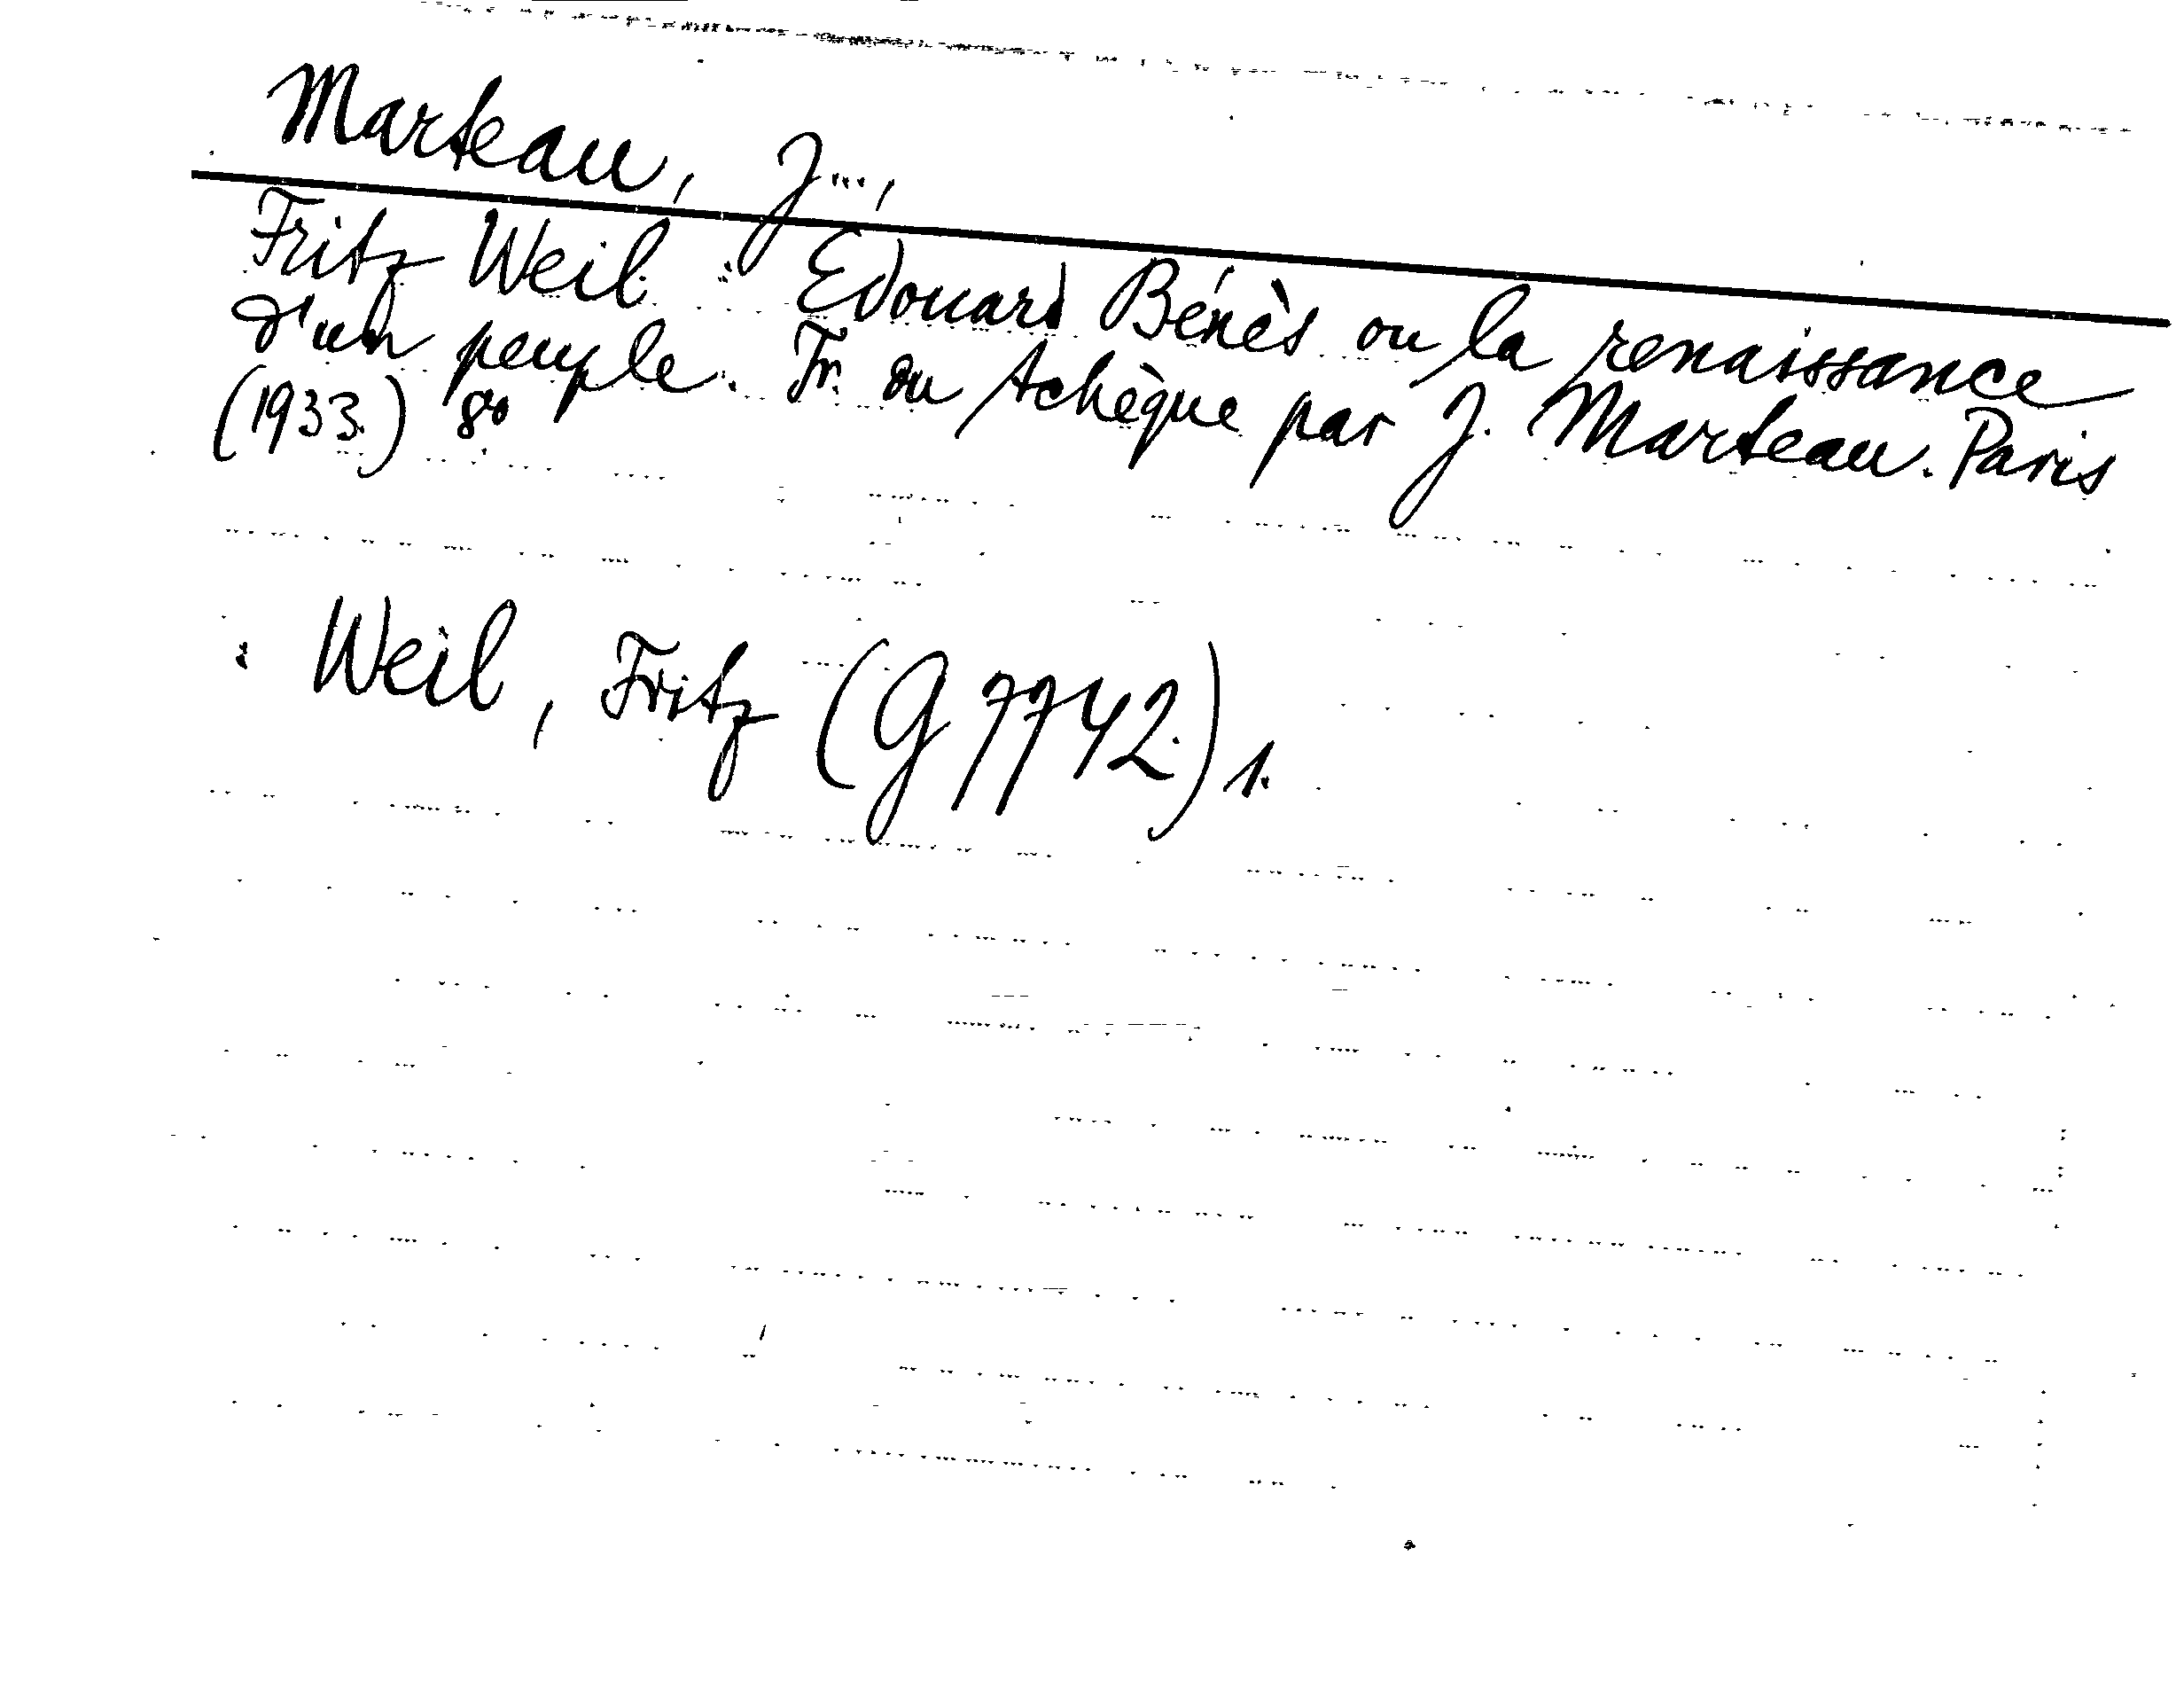 Marteau, J...,
Fritz Weil : Edouard Bénès ou la renaissance
d'un peuple. Tr. du tchèque par J. Marteau. Paris
(1933.) 8°
: Weil, Fritz (G 7742.) 1.